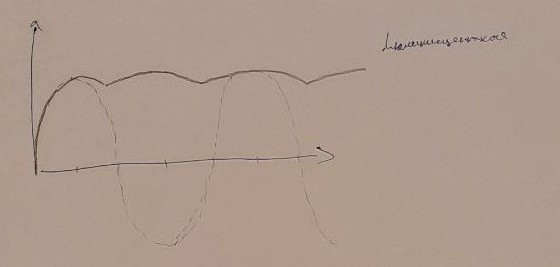 Люминисцентная